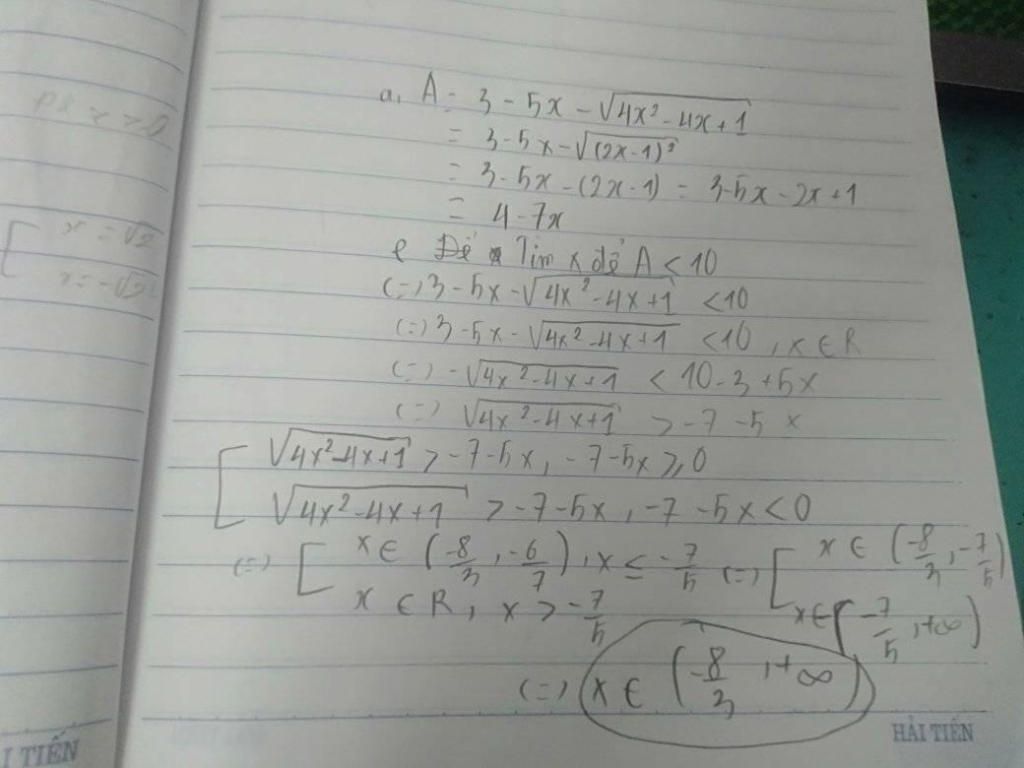 a, A = 3 - 5x - √(4x² - 4x + 1)
= 3 - 5x - √(2x-1)²
= 3 - 5x - (2x-1) = 3-5x-2x+1
= 4-7x
Để Tìm x để A < 10
(=) 3 - 5x - √(4x² - 4x + 1) < 10
(=) 3 - 5x - √(4x² - 4x + 1) < 10, x ∈ R
(=) -√(4x² - 4x + 1) < 10 - 3 + 5x
(=) √(4x² - 4x + 1) > -7 - 5x
[ √(4x² - 4x + 1) > -7 - 5x, -7 - 5x ≥ 0
√(4x² - 4x + 1) > -7 - 5x, -7 - 5x < 0
(=) [ x ∈ (-8/3, -6/7), x ≤ -7/5 (=) [ x ∈ (-8/3, -7/5)
x ∈ R, x > -7/5 x ∈ [-7/5, +∞)
(=) x ∈ (-8/3, +∞)
x = √2
x = -√2
HẢI TIẾN
I TIẾN